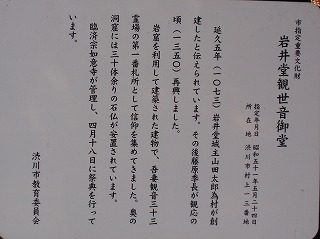 市指定重要文化財
岩井堂観世音御堂
指定年月日 昭和五十一年五月二十四日
所在地 渋川市村上一三番地
延久五年（一〇七三）岩井堂城主山田太郎為村が創
建したと伝えられています。その後藤原季長が観応の
頃（一三五〇）再興しました。
岩窟を利用して建築された建物で、吾妻観音三十三
霊場の第一番札所として信仰を集めてきました。奥の
洞窟には三十体余りの石仏が安置されています。
臨済宗如意寺が管理し、四月十八日に祭典を行って
います。
渋川市教育委員会